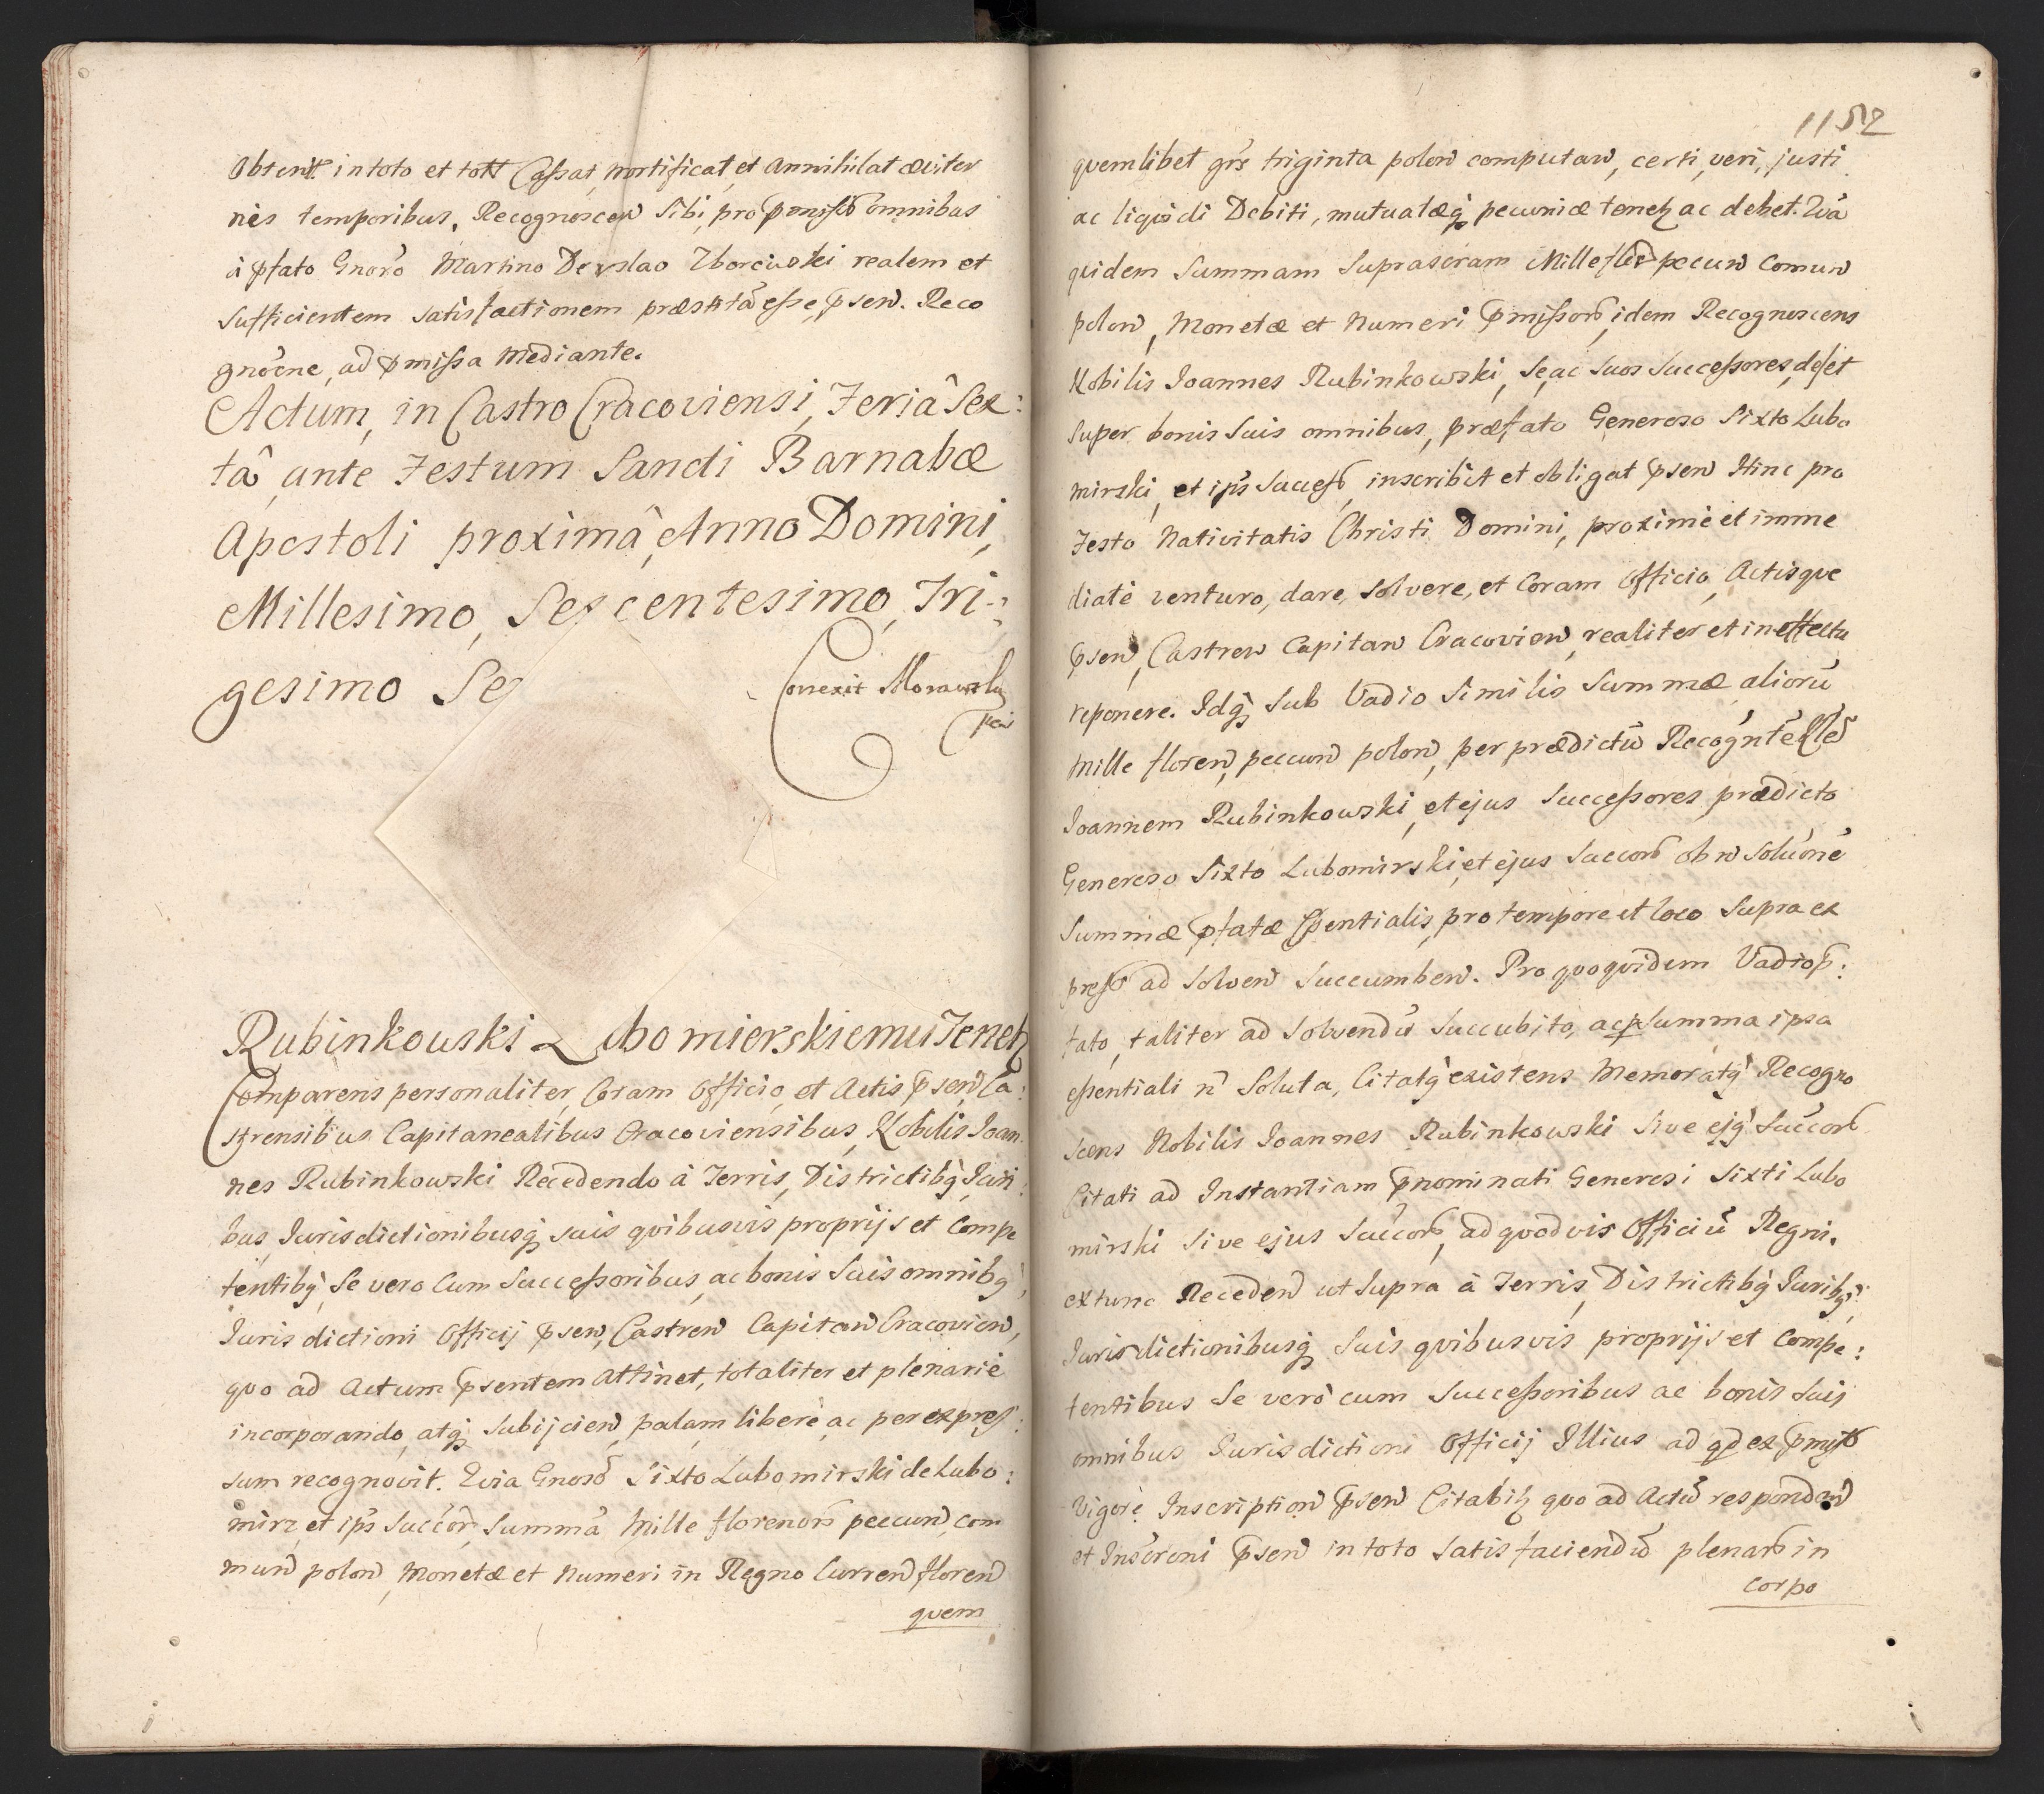 obtent in toto et tott Cassat, mortificat, et Annihilat æviter
nis temporibus. Recognoscen sibi, pro pmissis omnibus
à pfato Gnoro Martino Derslao Zborowski realem et
sufficientem satisfactionem præstitã esse, psen. Reco
gnõene, ad pmissa mediante.
Actum, in Castro Cracoviensi, Feriâ Sex:
tâ ante Festum Sancti Barnabæ
Apostoli proximâ, Anno Domini,
Millesimo, Sexcentesimo, Tri-
gesimo Se
Correxit Morawsky
Rubinkowski Lubomierskiemu Tenetz
Comparens personaliter, Coram Officio, et Actis psen Ca:
strensibus Capitanealibus Cracoviensibus, Nobilis Joan
nes Rubinkowski Recedendo à Terris, Districtibq Juri
bus, Jurisdictionibusq suis qvibusvis proprijs et Compe
tentibq, Se vero Cum Successoribus, ac bonis Suis omnibq,
Jurisdictioni Officij psen, Castren Capitan Cracovien,
qvo ad Actum psentem attinet, totaliter et plenariè
incorporando, atq subijcien, palam liberè, ac per expres:
sum recognovit. Qvia Gnoso Sixto Lubomirski de Lubo:
mirz et ips Succor Summã Mille florenor peccun, com
mun polon, Monetæ et Numeri in Regno Curren floren
quem
1152
qvemlibet grs triginta polon computan, certi, veri, justi
ac liqvidi Debiti, mutuatæq pecuniæ tenetz ac debet. Qvã
qvidem Summam Suprascram Mille flor peccun Comun
polon, Monetæ et Numeri pmissor, idem Recognoscens
Nobilis Joannes Rubinkowski, Se, ac Suos Successores, de et
super bonis Suis omnibus, præfato Generoso Sixto Lubo
mirski, et ips Success, inscribit et obligat psen Hinc pro
Festo Nativitatis Christi Domini, proximè et imme
diatè venturo, dare, solvere, et Coram Officio, Actisqve
psen, Castren Capitan Cracovien, realiter et in effectu
reponere. Idq sub Vadio similis Summæ aliorũ
Mille floren, peccun polon, per prædictũ Recogntẽ Nlẽ
Joannem Rubinkowski, et ejus Successores, prædicto
Generoso Sixto Lubomirski, et ejus Succor ob n Soluõnẽ
Summæ pfatæ essentialis, pro tempore et loco Supra ex
press ad Solven Succumben. Pro qvoqvidem Vadio p:
tato, taliter ad Solvendũ Succubito, ac p Summa ipsa
essentiali n Soluta, Citatq existens Memoratq Recogno
scens Nobilis Joannes Rubinkowski Sive ejq Succor
Citati ad Instantiam pnominati Generosi Sixti Lubo
mirski Sive ejus Succor, ad qvodvis Officiũ Regni,
extunc Receden ut supra à Terris, Districtibq Juribq,
Jurisdictionibusq Suis qvibusvis proprijs et Compe:
tentibus Se verò cum Successoribus ac bonis Suis
omnibus Jurisdictioni Officij Illius ad qd ex pmiss
Vigore Inscription psen Citabitz qvo ad Actũ responden
et Inscrõni psen in toto Satisfaciendũ plenar in
corpo